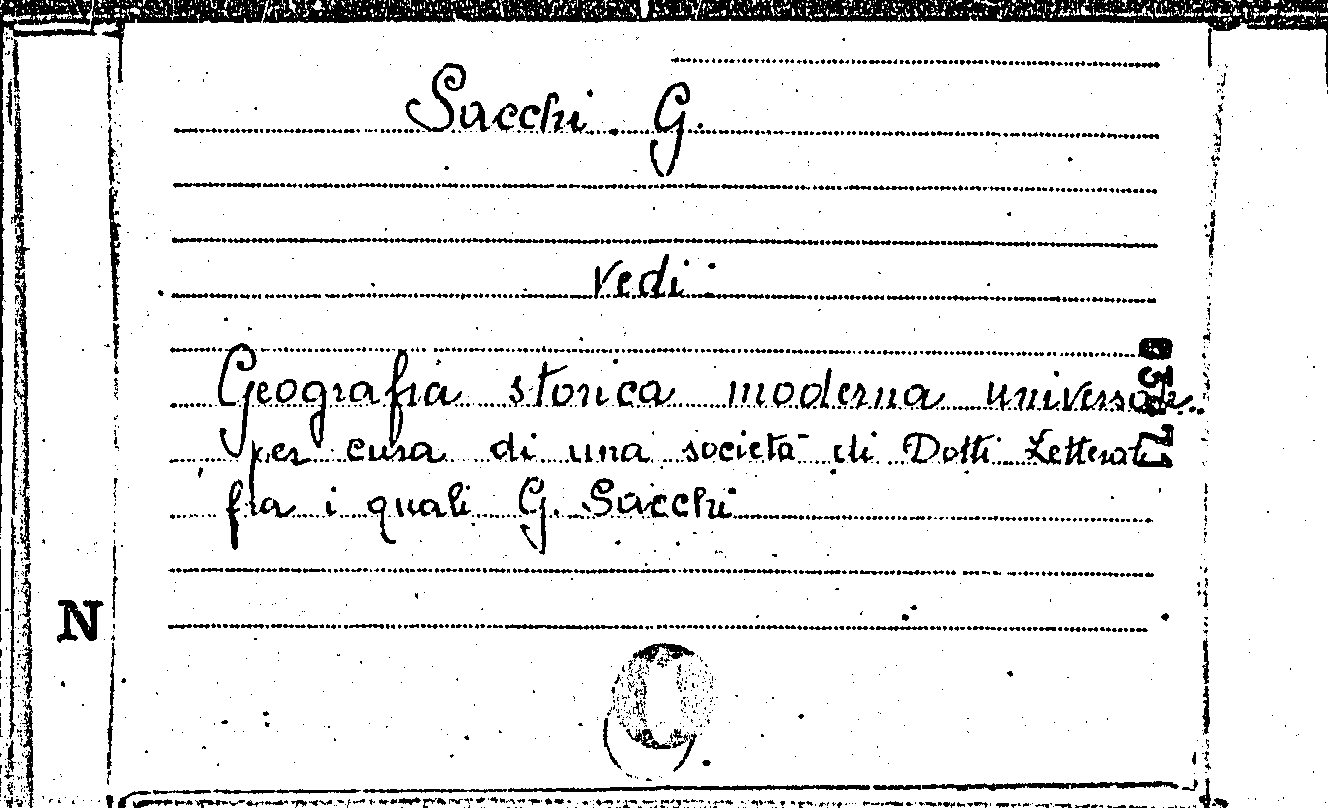 Sacchi G.
vedi:
Geografia storica moderna universale..
per cura di una società di Dotti Letterati
fra i quali G. Sacchi
N